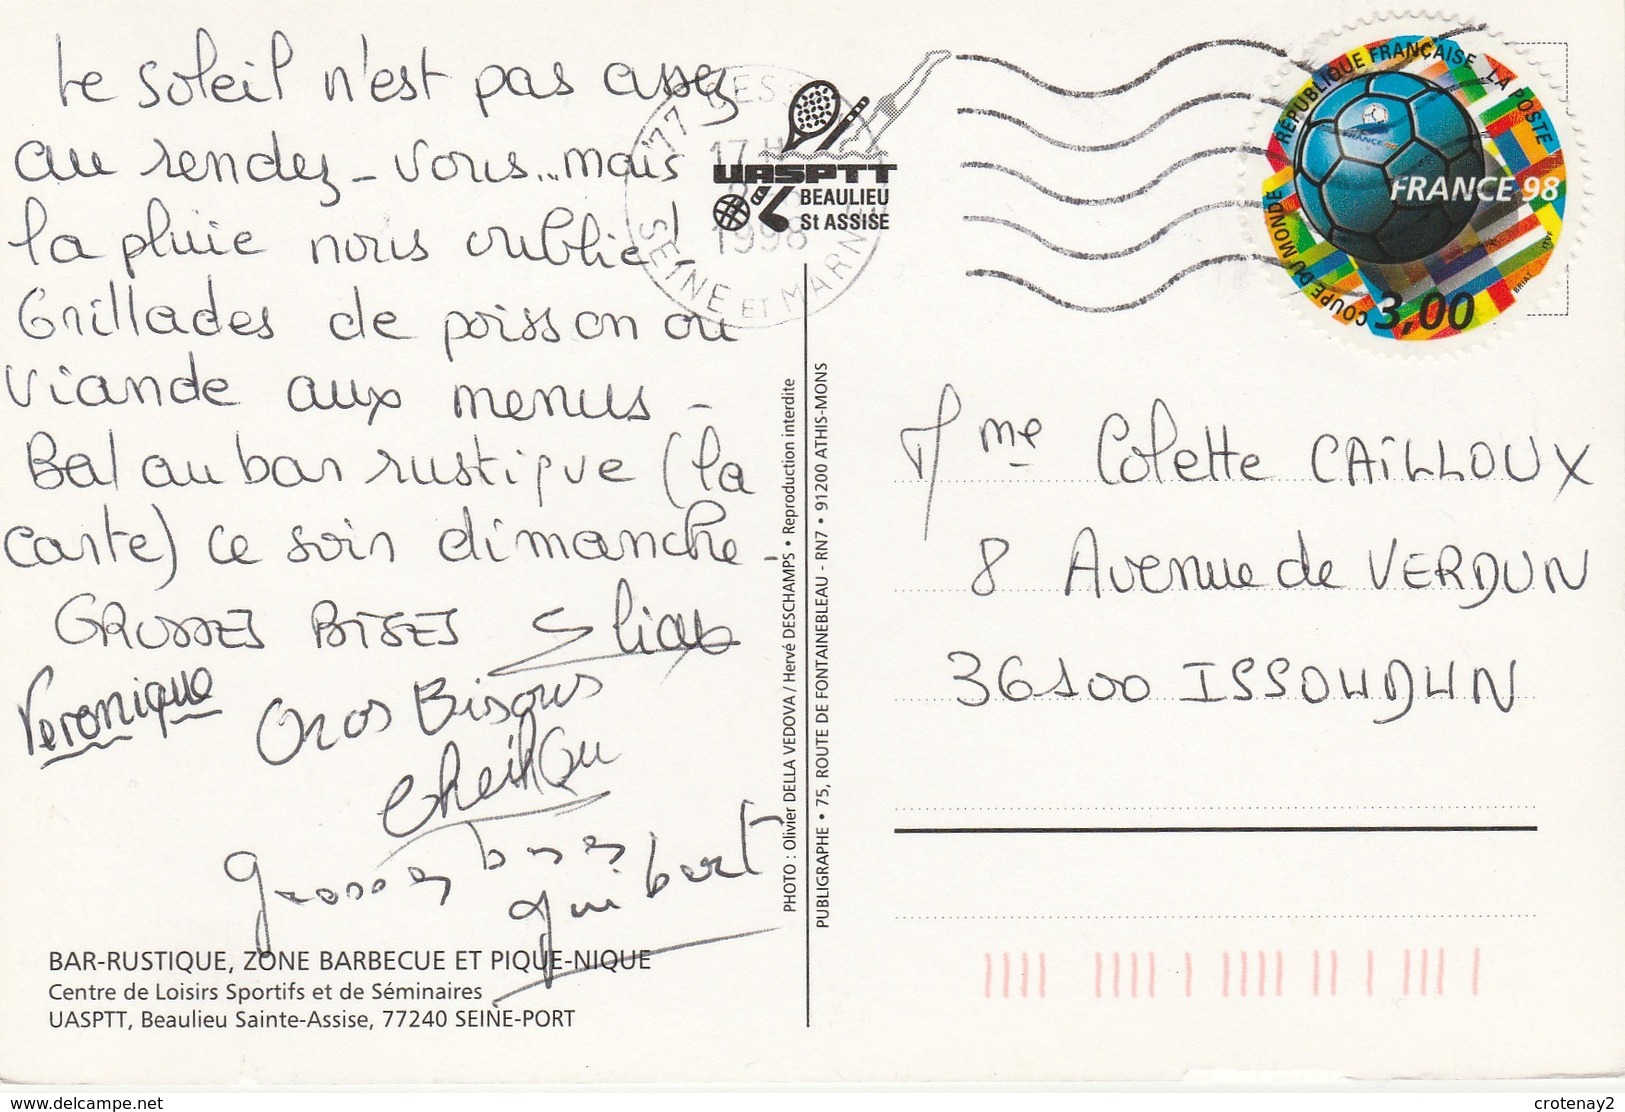 Le soleil n'est pas assez
au rendez-vous... mais
la pluie nous oublie!
Grillades de poisson ou
viande aux menus -
Bal au bar rustique (la
carte) ce soir dimanche -
GROSSES BISES
Veronique
Gros Bisous
grosses bises
guibert
BAR-RUSTIQUE, ZONE BARBECUE ET PIQUE-NIQUE
Centre de Loisirs Sportifs et de Séminaires
UASPTT, Beaulieu Sainte-Assise, 77240 SEINE-PORT
PHOTO : Olivier DELLA VEDOVA / Hervé DESCHAMPS • Reproduction interdite
PUBLIGRAPHE • 75, ROUTE DE FONTAINEBLEAU - RN7 • 91200 ATHIS-MONS
77
17 H
1998
SEINE ET MARNE
UASPTT
BEAULIEU
St ASSISE
RÉPUBLIQUE FRANÇAISE LA POSTE
FRANCE 98
COUPE DU MONDE
3,00
BRIAT
ITVF
Mme Colette CAILLOUX
8 Avenue de VERDUN
36100 ISSOUDUN
www.delcampe.net
crotenay2